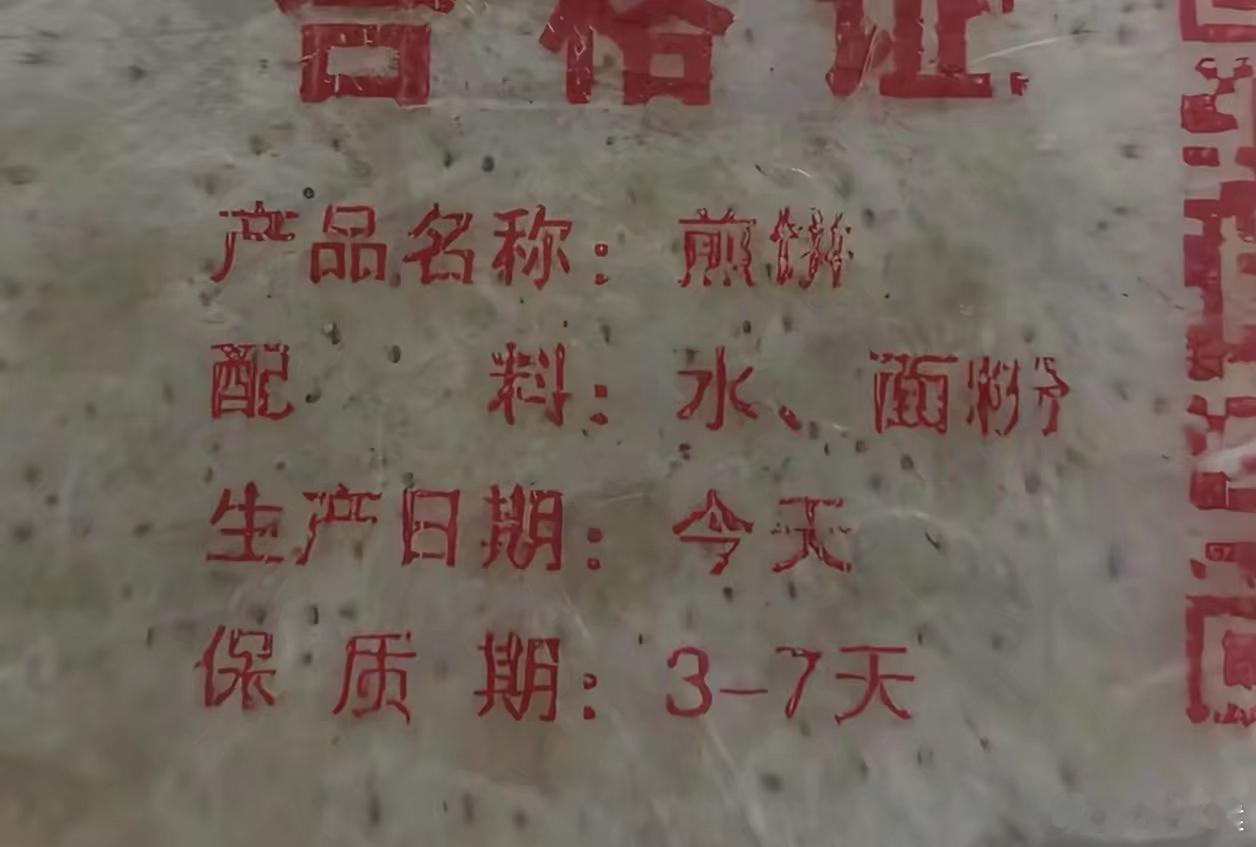 合格证
产品名称：煎饼
配料：水、面粉
生产日期：今天
保质期：3-7天